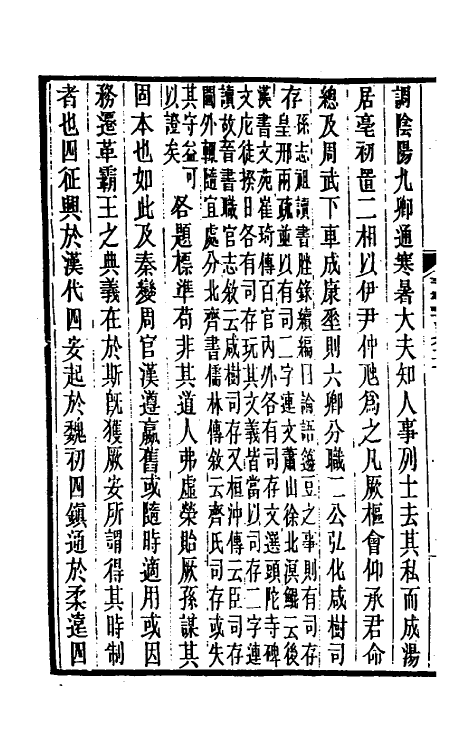 調陰陽九卿通寒暑大夫知人事列士去其私而成湯
居亳初置二相以伊尹仲虺爲之凡厥樞會仰承君命
總及周武下車成康垂則六卿分職二公弘化咸樹司
存孫志祖讀書脞錄續編曰論語籩豆之事則有司存
皇邢兩疏並以有司二字連文蕭山徐北溟鯤云後
漢書文苑崔琦傳百官內外各有司存文選頭陀寺碑
文庀徒揆日各有司存玩其文義皆當以司存二字連
讀故晉書職官志敘云咸樹司存又桓沖傳云臣司存
閫外輒隨宜處分北齊書儒林傳敘云齊氏司存或失
其守益可
以證矣
各題標準苟非其道人弗虛榮貽厥孫謀其
固本也如此及秦變周官漢遵嬴舊或隨時適用或因
務遷革霸王之典義在於斯旣獲厥安所謂得其時制
者也四征興於漢代四安起於魏初四鎮通於柔遠四